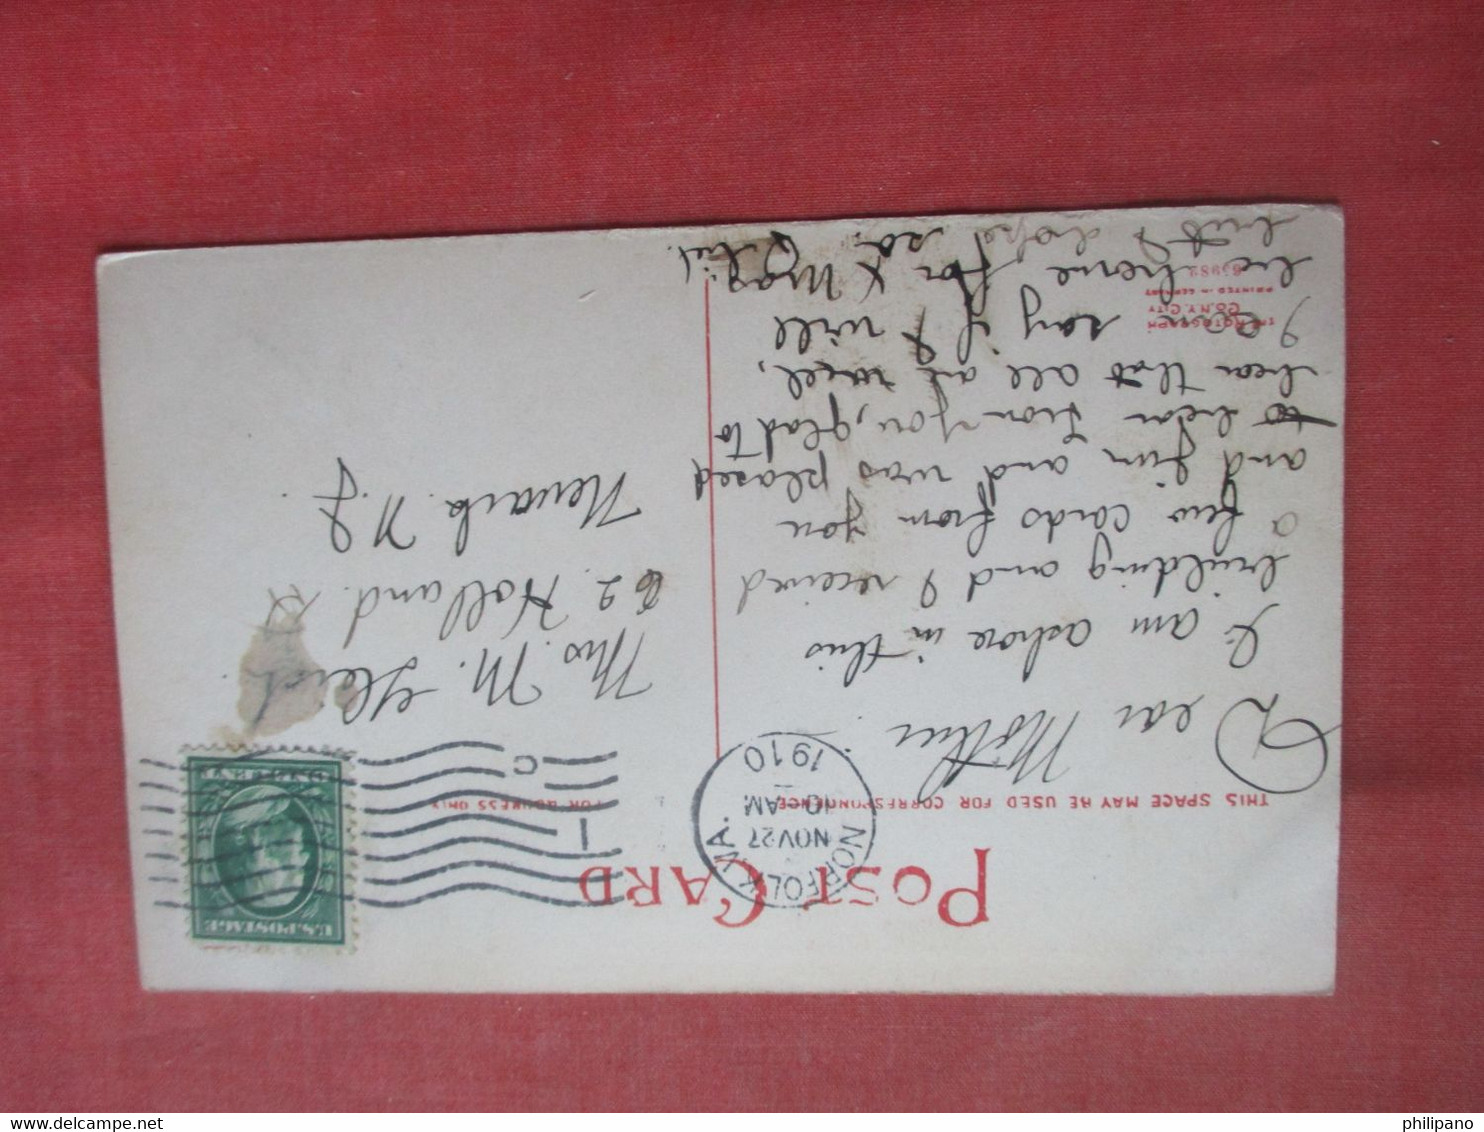 POST CARD
THIS SPACE MAY BE USED FOR CORRESPONDENCE
FOR ADDRESS ONLY
NORFOLK, VA.
NOV 27
10 AM
1910
1
C
U.S. POSTAGE
Dear Mother
I am ashore in this
building and I received
a few cards from you
and Jim and was plased
to hear from you, glad to
hear that all are well,
I can say if I will
be home for X mas
but I hope so.
THE ROTOGRAPH
CO. N.Y. CITY
PRINTED IN GERMANY
65982
Mrs. M.
62 Holland
Newark N.J.
delcampe.net
philipano